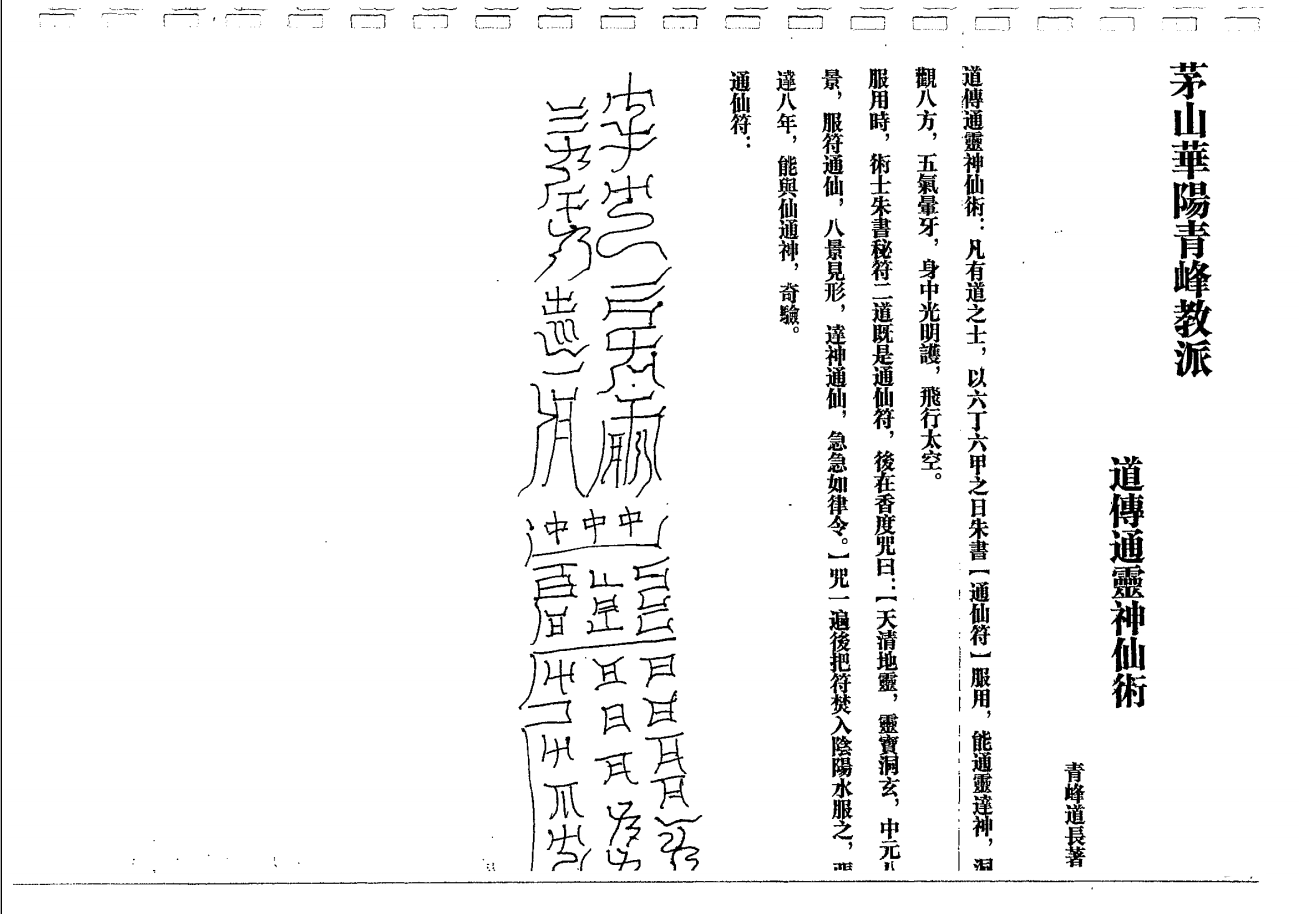 茅山華陽青峰教派
道傳通靈神仙術
青峰道長著
道傳通靈神仙術：凡有道之士，以六丁六甲之日朱書【通仙符】服用，能通靈達神，洞
觀八方，五氣暈牙，身中光明護，飛行太空。
服用時，術士朱書秘符二道既是通仙符，後在香度咒曰：【天清地靈，靈寶洞玄，中元八
景，服符通仙，八景見形，達神通仙，急急如律令。】咒一遍後把符焚入陰陽水服之，
達八年，能與仙通神，奇驗。
通仙符：
中中中